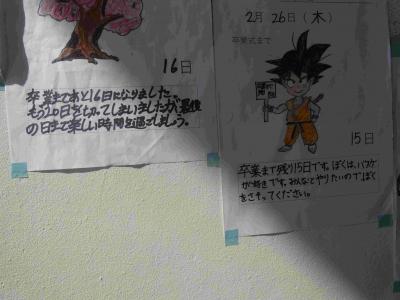 16日
卒業まであと16日になりました。
もう20日をきってしまいましたが最後
の日まで楽しい時間を過ごしましょう。
2月 26日(木)
卒業式まで
15日
卒業まで残り15日です。ぼくは、バスケ
が好きです。みんなとやりたいのでぼく
をさそってください。